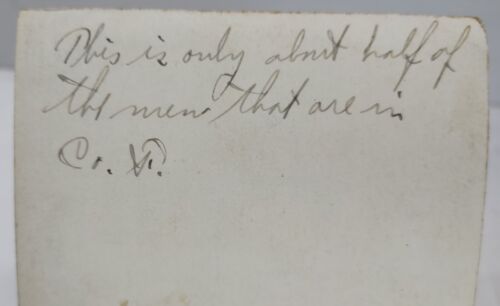 This is only about half of
the men that are in
Co. F.